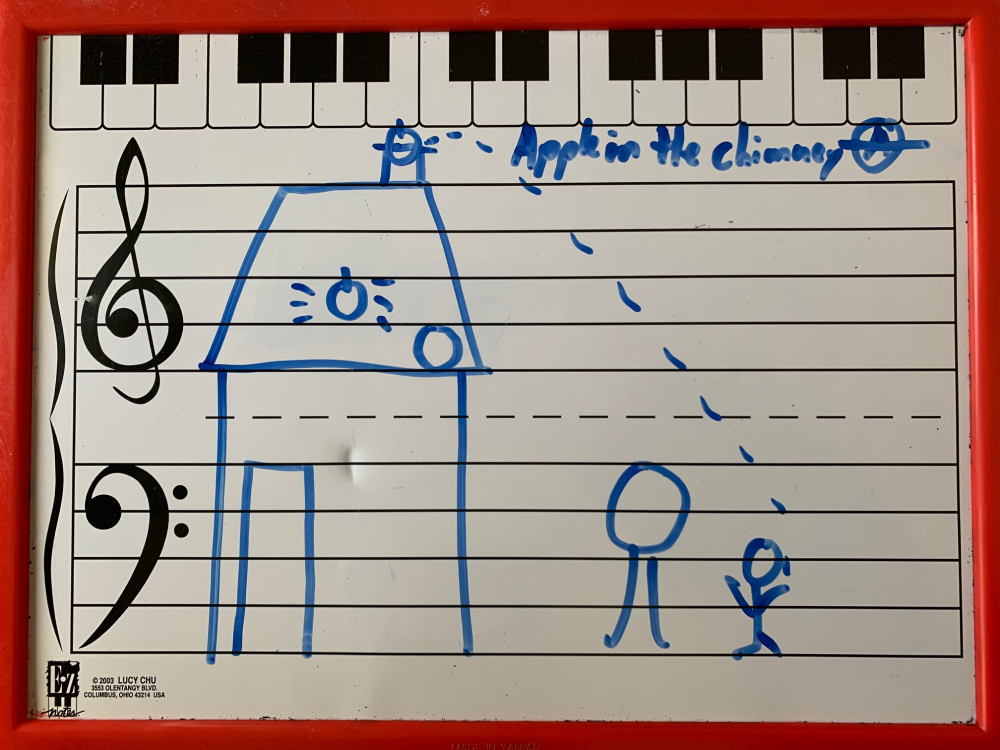 Apple in the chimney A
E-Z
notes
© 2003 LUCY CHU
3553 OLENTANGY BLVD.
COLUMBUS, OHIO 43214 USA
MADE IN TAIWAN